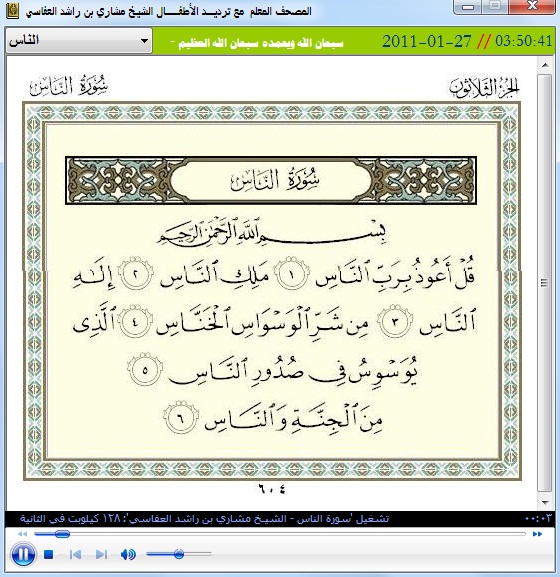 المصحف المعلم مع ترديد الأطفال الشيخ مشاري بن راشد العفاسي
الناس
سبحان الله وبحمده سبحان الله العظيم -
2011-01-27 // 03:50:41
الجزء الثلاثون
سورة الناس
سُورَةُ النَّاسِ
بِسْمِ اللَّهِ الرَّحْمَٰنِ الرَّحِيمِ
قُلْ أَعُوذُ بِرَبِّ النَّاسِ ١ مَلِكِ النَّاسِ ٢ إِلَٰهِ
النَّاسِ ٣ مِن شَرِّ الْوَسْوَاسِ الْخَنَّاسِ ٤ الَّذِي
يُوَسْوِسُ فِي صُدُورِ النَّاسِ ٥
مِنَ الْجِنَّةِ وَالنَّاسِ ٦
٦٠٤
تشغيل 'سورة الناس - الشيخ مشاري بن راشد العفاسي': ١٢٨ كيلوبت في الثانية
٠٠:٠٣